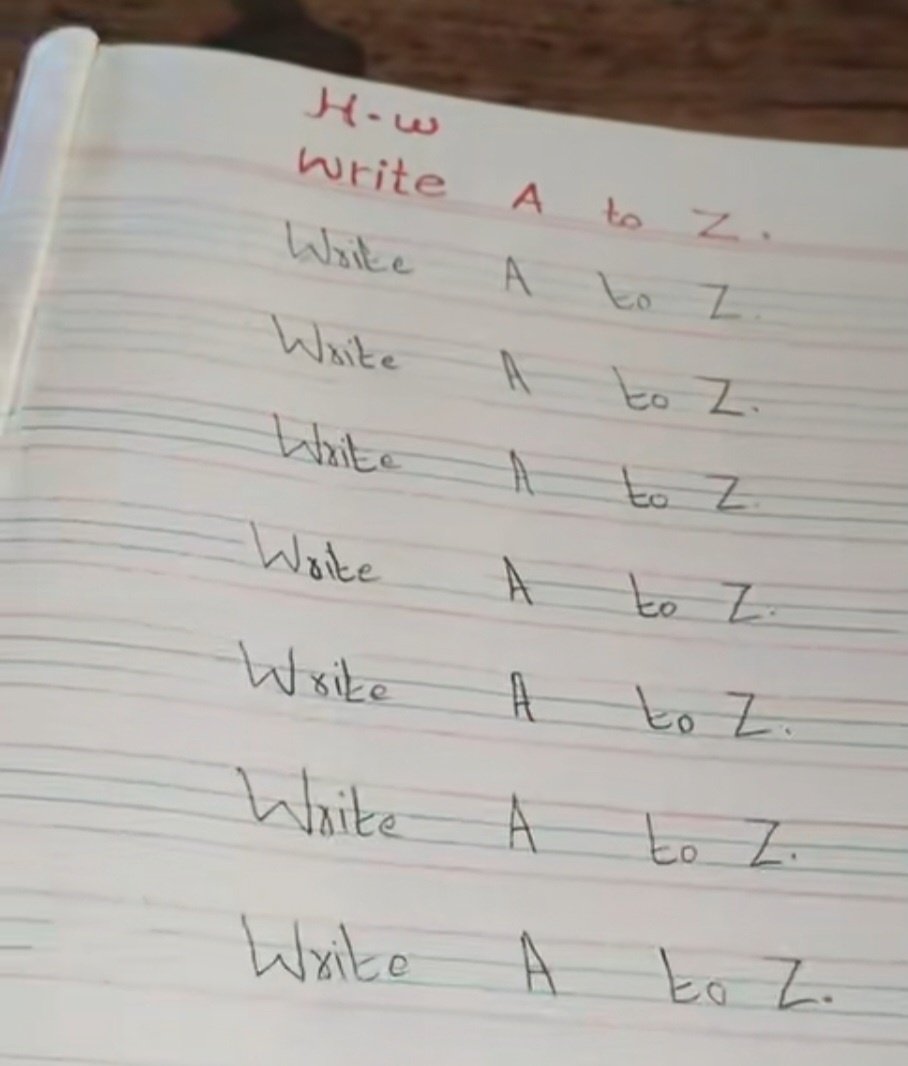 H-w
Write A to Z.
Write A to Z.
Write A to Z.
Write A to Z.
Write A to Z.
Write A to Z.
Write A to Z.
Write A to Z.